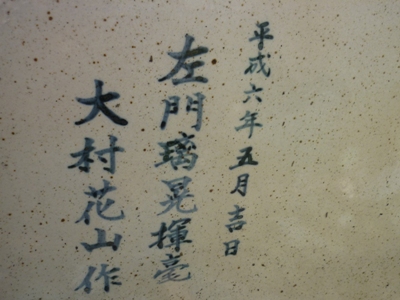 平成六年五月吉日
左門璃晃揮毫
大村花山作